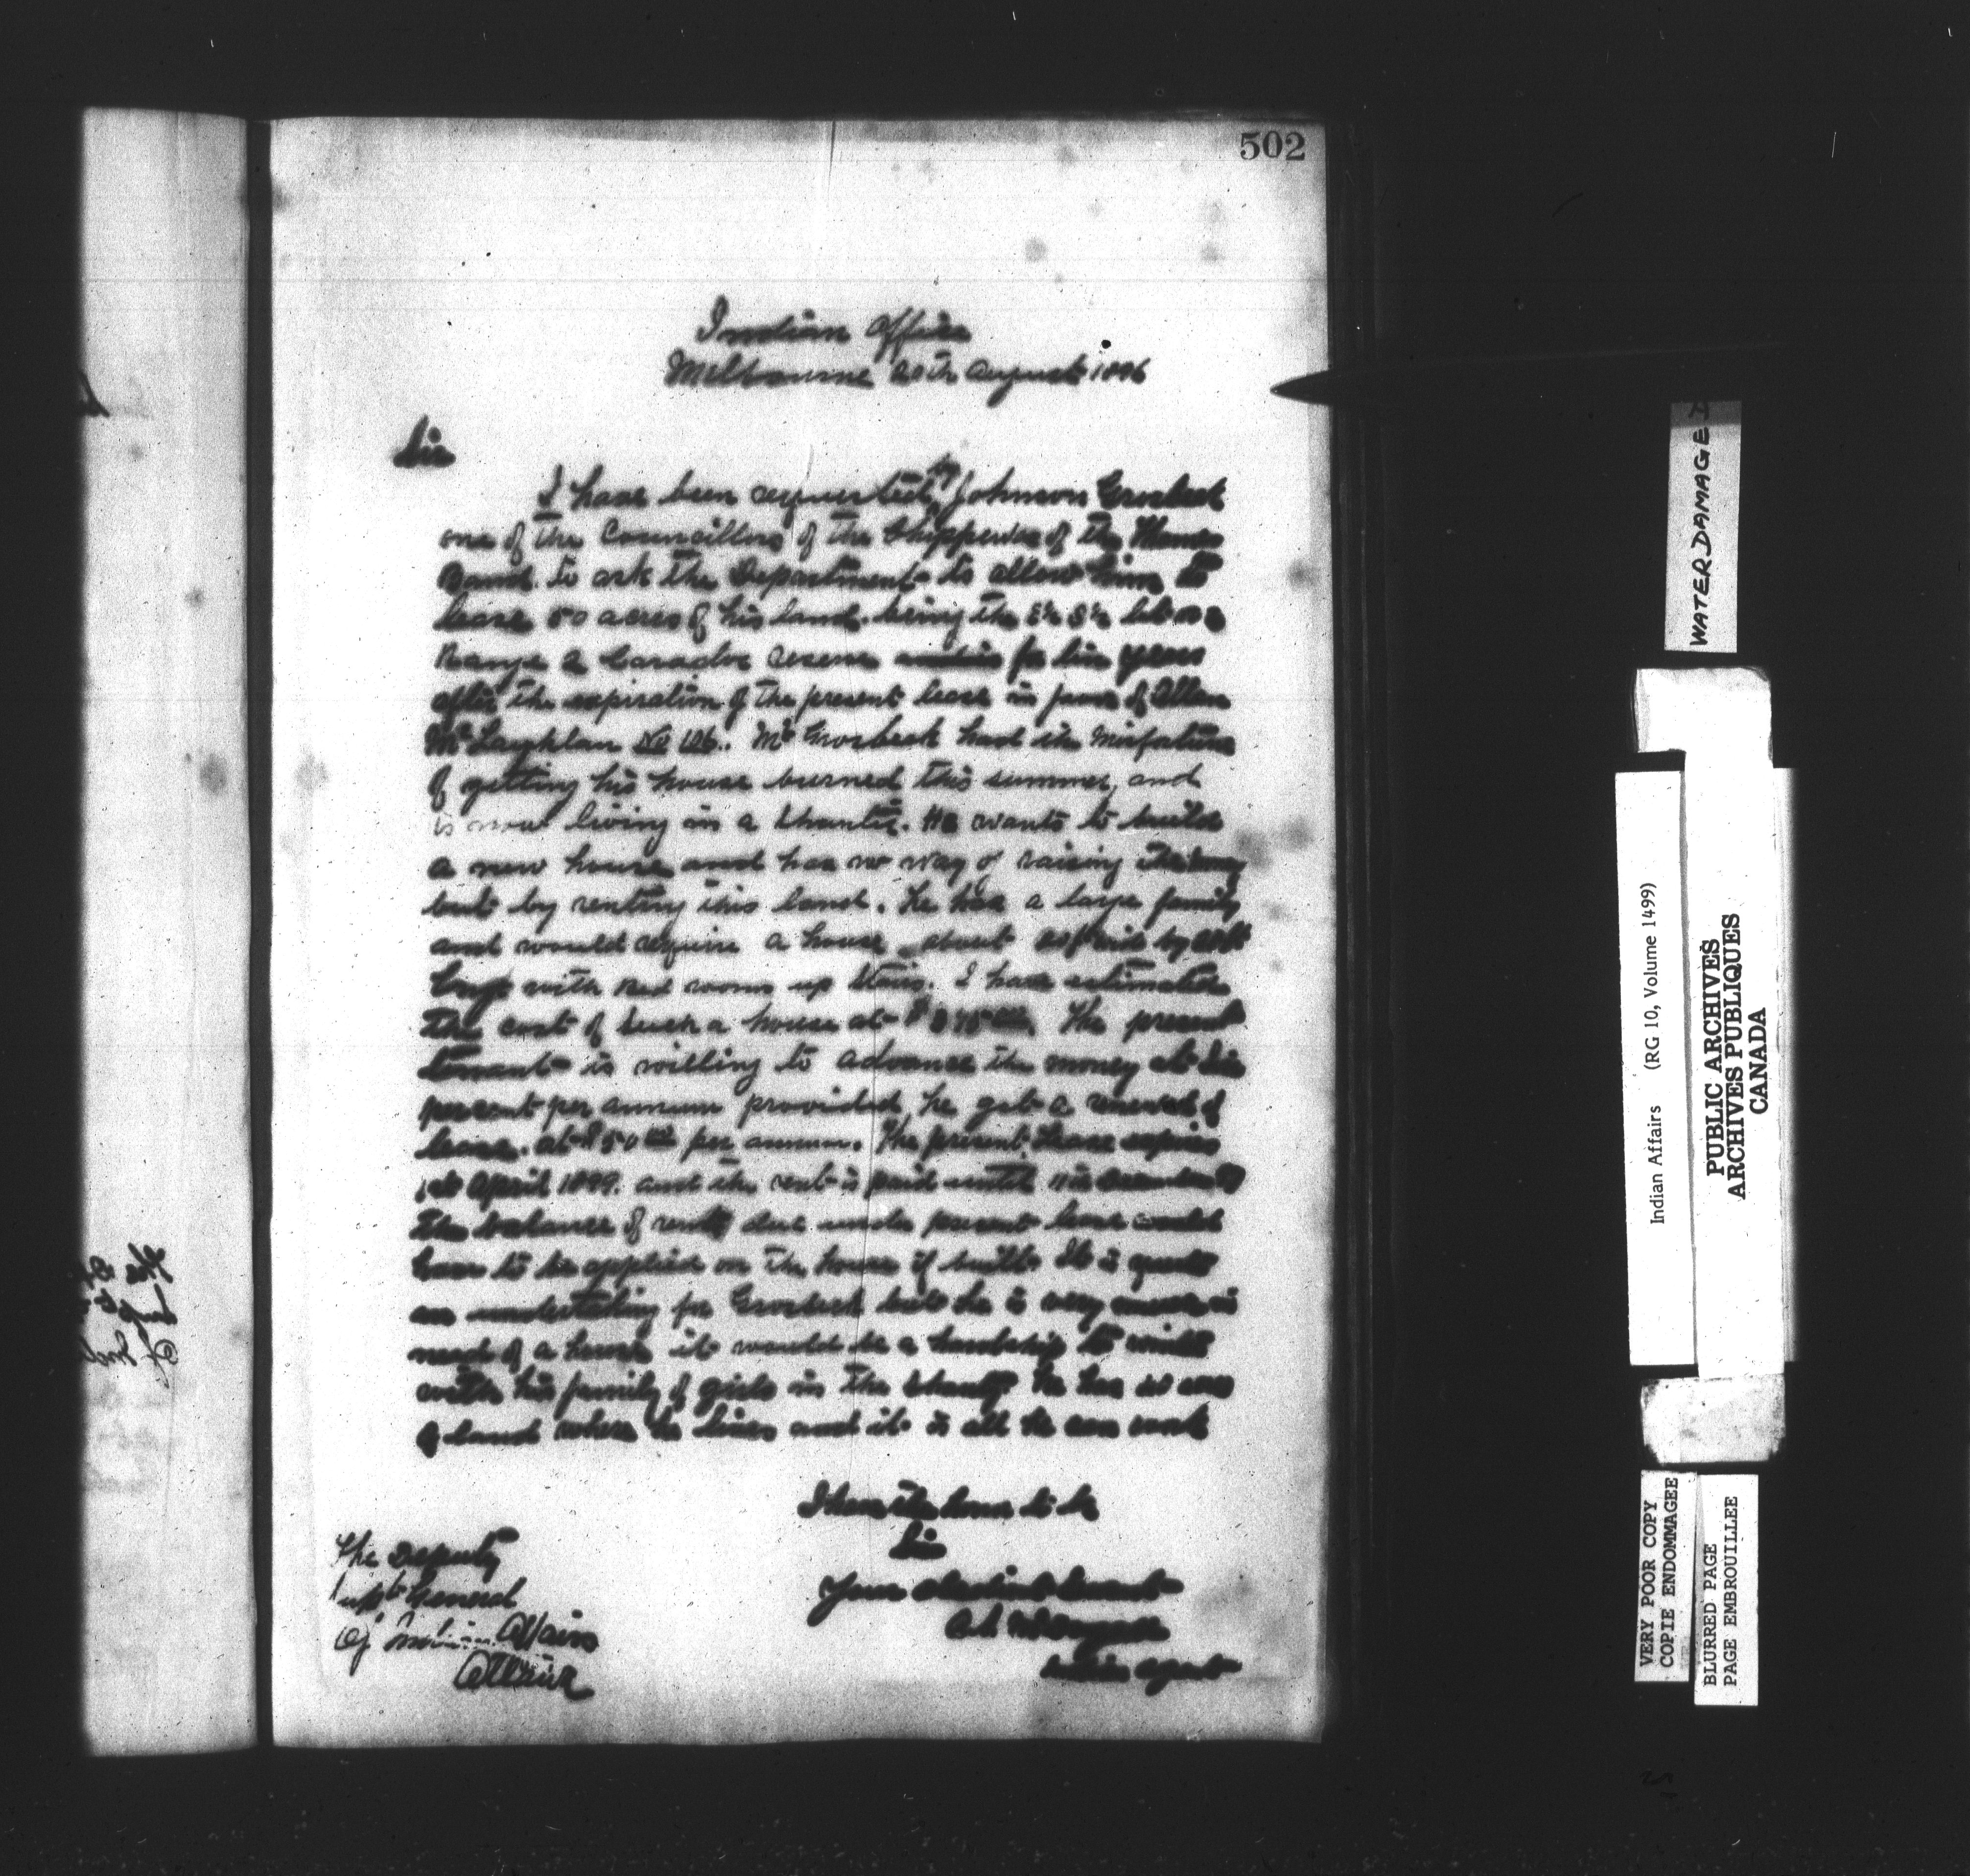 502
Indian Office
Melbourne 20th August 1896
Sir
I have been requested by Johnson Grosbeck
one of the Councillors of the Chippewas of the Thames
Band. to ask the Department to allow him to
lease 50 acres of his land. being the
Range 2 Caradoc reserve for Six years
after the expiration of the present lease in favor of Allan
McLaughlan No Mr Grosbeck had the misfortune
of getting his house burned this summer, and
is now living in a Shanty. He wants to build
a new house and has no way of raising the money
but by renting this land. he has a large family
and would require a house about by
long with bed rooms up Stairs. I have estimated
the cost of Such a house at The present
tenant is willing to advance the money at Six
per cent per annum provided he get a renewal of
lease. at $50 per annum. The present Lease expires
1st April 1899. and the rent is paid until
the balance of rent due under present lease would
have to be applied on the house if built. It is quite
an undertaking for Grosbeck but he is very much in
need of a house it would be a hardship to winter
with his family of girls in the Shanty he has
of land where he lives and it is all he can work
I have the honor to be
Sir
Your obedient Servant
Indian Agent
The Deputy
Supt General
Of Indian Affairs
Ottawa
WATER DAMAGED
Indian Affairs (RG 10, Volume 1499)
PUBLIC ARCHIVES
ARCHIVES PUBLIQUES
CANADA
VERY POOR COPY
COPIE ENDOMMAGEE
BLURRED PAGE
PAGE EMBROUILLEE